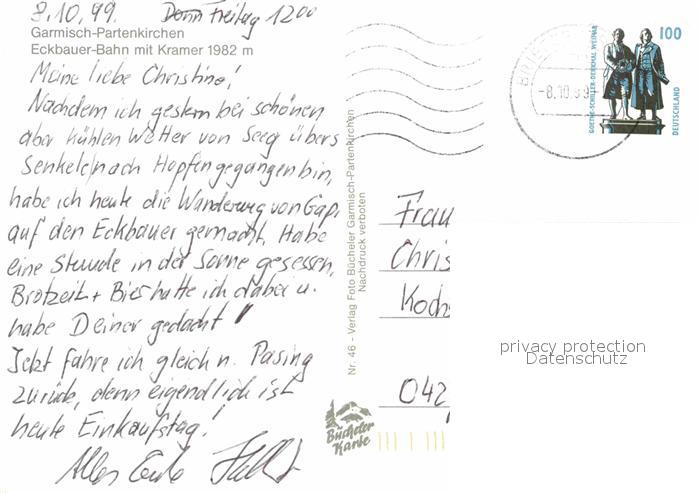 8.10.99. Donn Freitag 12 00
Garmisch-Partenkirchen
Eckbauer-Bahn mit Kramer 1982 m
Meine liebe Christine!
Nachdem ich gestern bei schönen
aber kühlen Wetter von Seeg übers
Senkele nach Hopfen gegangen bin,
habe ich heute die Wanderung von Gap.
auf den Eckbauer gemacht. Habe
eine Stunde in der Sonne gesessen,
Brotzeit + Bier hatte ich dabei u.
habe Deiner gedacht!
Jetzt fahre ich gleich n. Pasing
zurück, denn eigendlich ist
heute Einkaufstag!
Alles Gute
Nr. 46 - Verlag Foto Bücheler Garmisch-Partenkirchen
Nachdruck verboten
Bücheler
Karte
-8.10.99
GOETHE-SCHILLER-DENKMAL WEIMAR
100
DEUTSCHLAND
Frau
Chris
Koch
042
privacy protection
Datenschutz